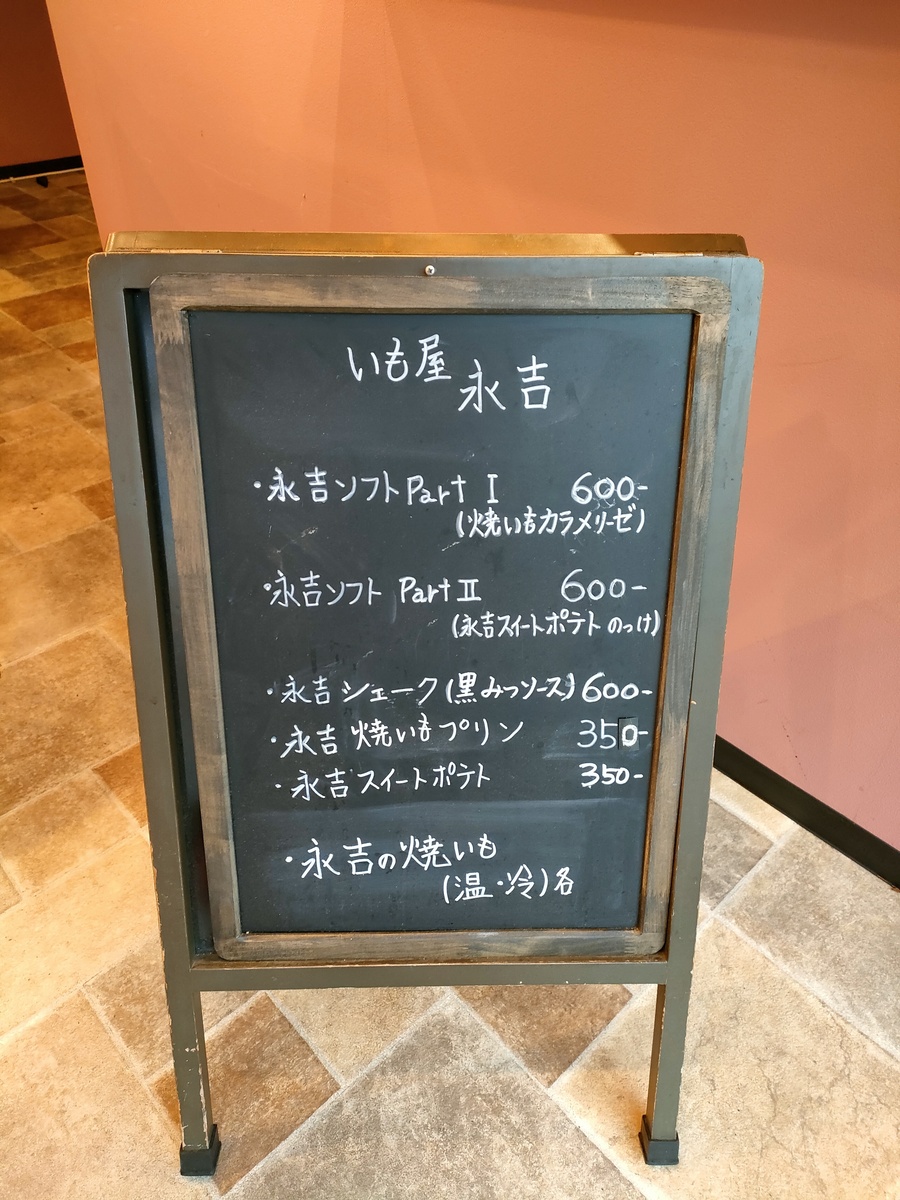 いも屋
永吉
・永吉ソフトPart I 600-
(焼いもカラメリーゼ)
・永吉ソフト Part II 600-
(永吉スイートポテト のっけ)
・永吉 シェーク(黒みつソース) 600-
・永吉 焼いもプリン 350-
・永吉スイートポテト 350-
・永吉の焼いも
(温・冷)各